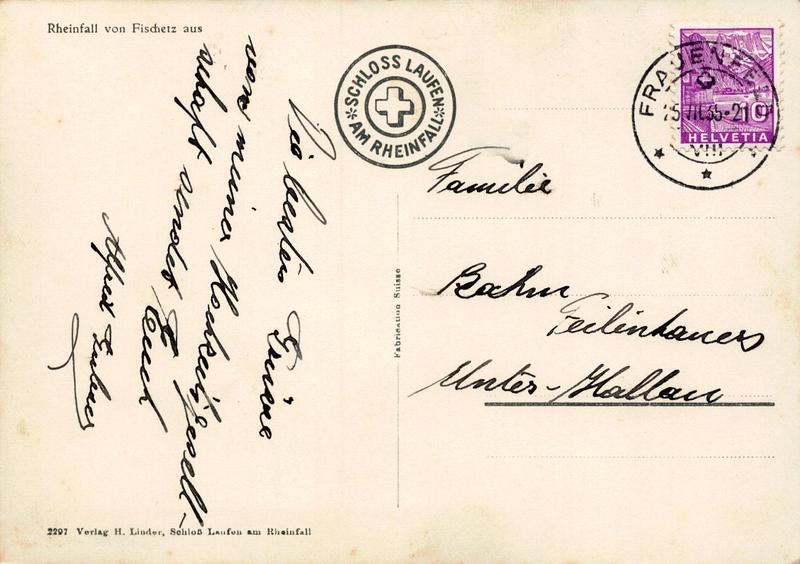 Rheinfall von Fischetz aus
SCHLOSS LAUFEN
AM RHEINFALL
FRAUENFELD
VIII
10
HELVETIA
Die besten Grüsse
von meiner Hochzeitsgesell-
schaft sendet Euch
Alfred
Familie
Bahm
Feilenhauers
Unter-Hallau
Fabrication Suisse
2297 Verlag H. Linder, Schloß Laufen am Rheinfall